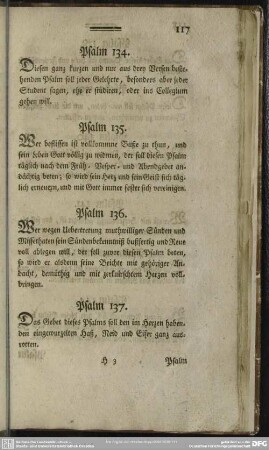 117
Psalm 134.
Diesen ganz kurzen und nur aus drey Versen beste-
henden Psalm soll jeder Gelehrte, besonders aber jeder
Student sagen, ehe er studiert, oder ins Collegium
gehen will.
Psalm 135.
Wer beflissen ist vollkommne Busse zu thun, und
sein Leben Gott völlig zu widmen, der soll diesen Psalm
täglich nach dem Früh- Vesper- und Abendgebet an-
dächtig beten; so wird sein Herz und sein Geist sich täg-
lich erneuern, und mit Gott immer fester sich vereinigen.
Psalm 136.
Wer wegen Uebertretung muthwilliger Sünden und
Missethaten sein Sündenbekenntniß bußfertig und Reue
voll ablegen will, der soll zuvor diesen Psalm beten,
so wird er alsdenn seine Beichte mit gehöriger An-
dacht, demüthig und mit zerknirschtem Herzen voll-
bringen.
Psalm 137.
Das Gebet dieses Psalms soll den im Herzen haben-
den eingewurzelten Haß, Neid und Eifer ganz aus-
rotten.
H 3 Psalm